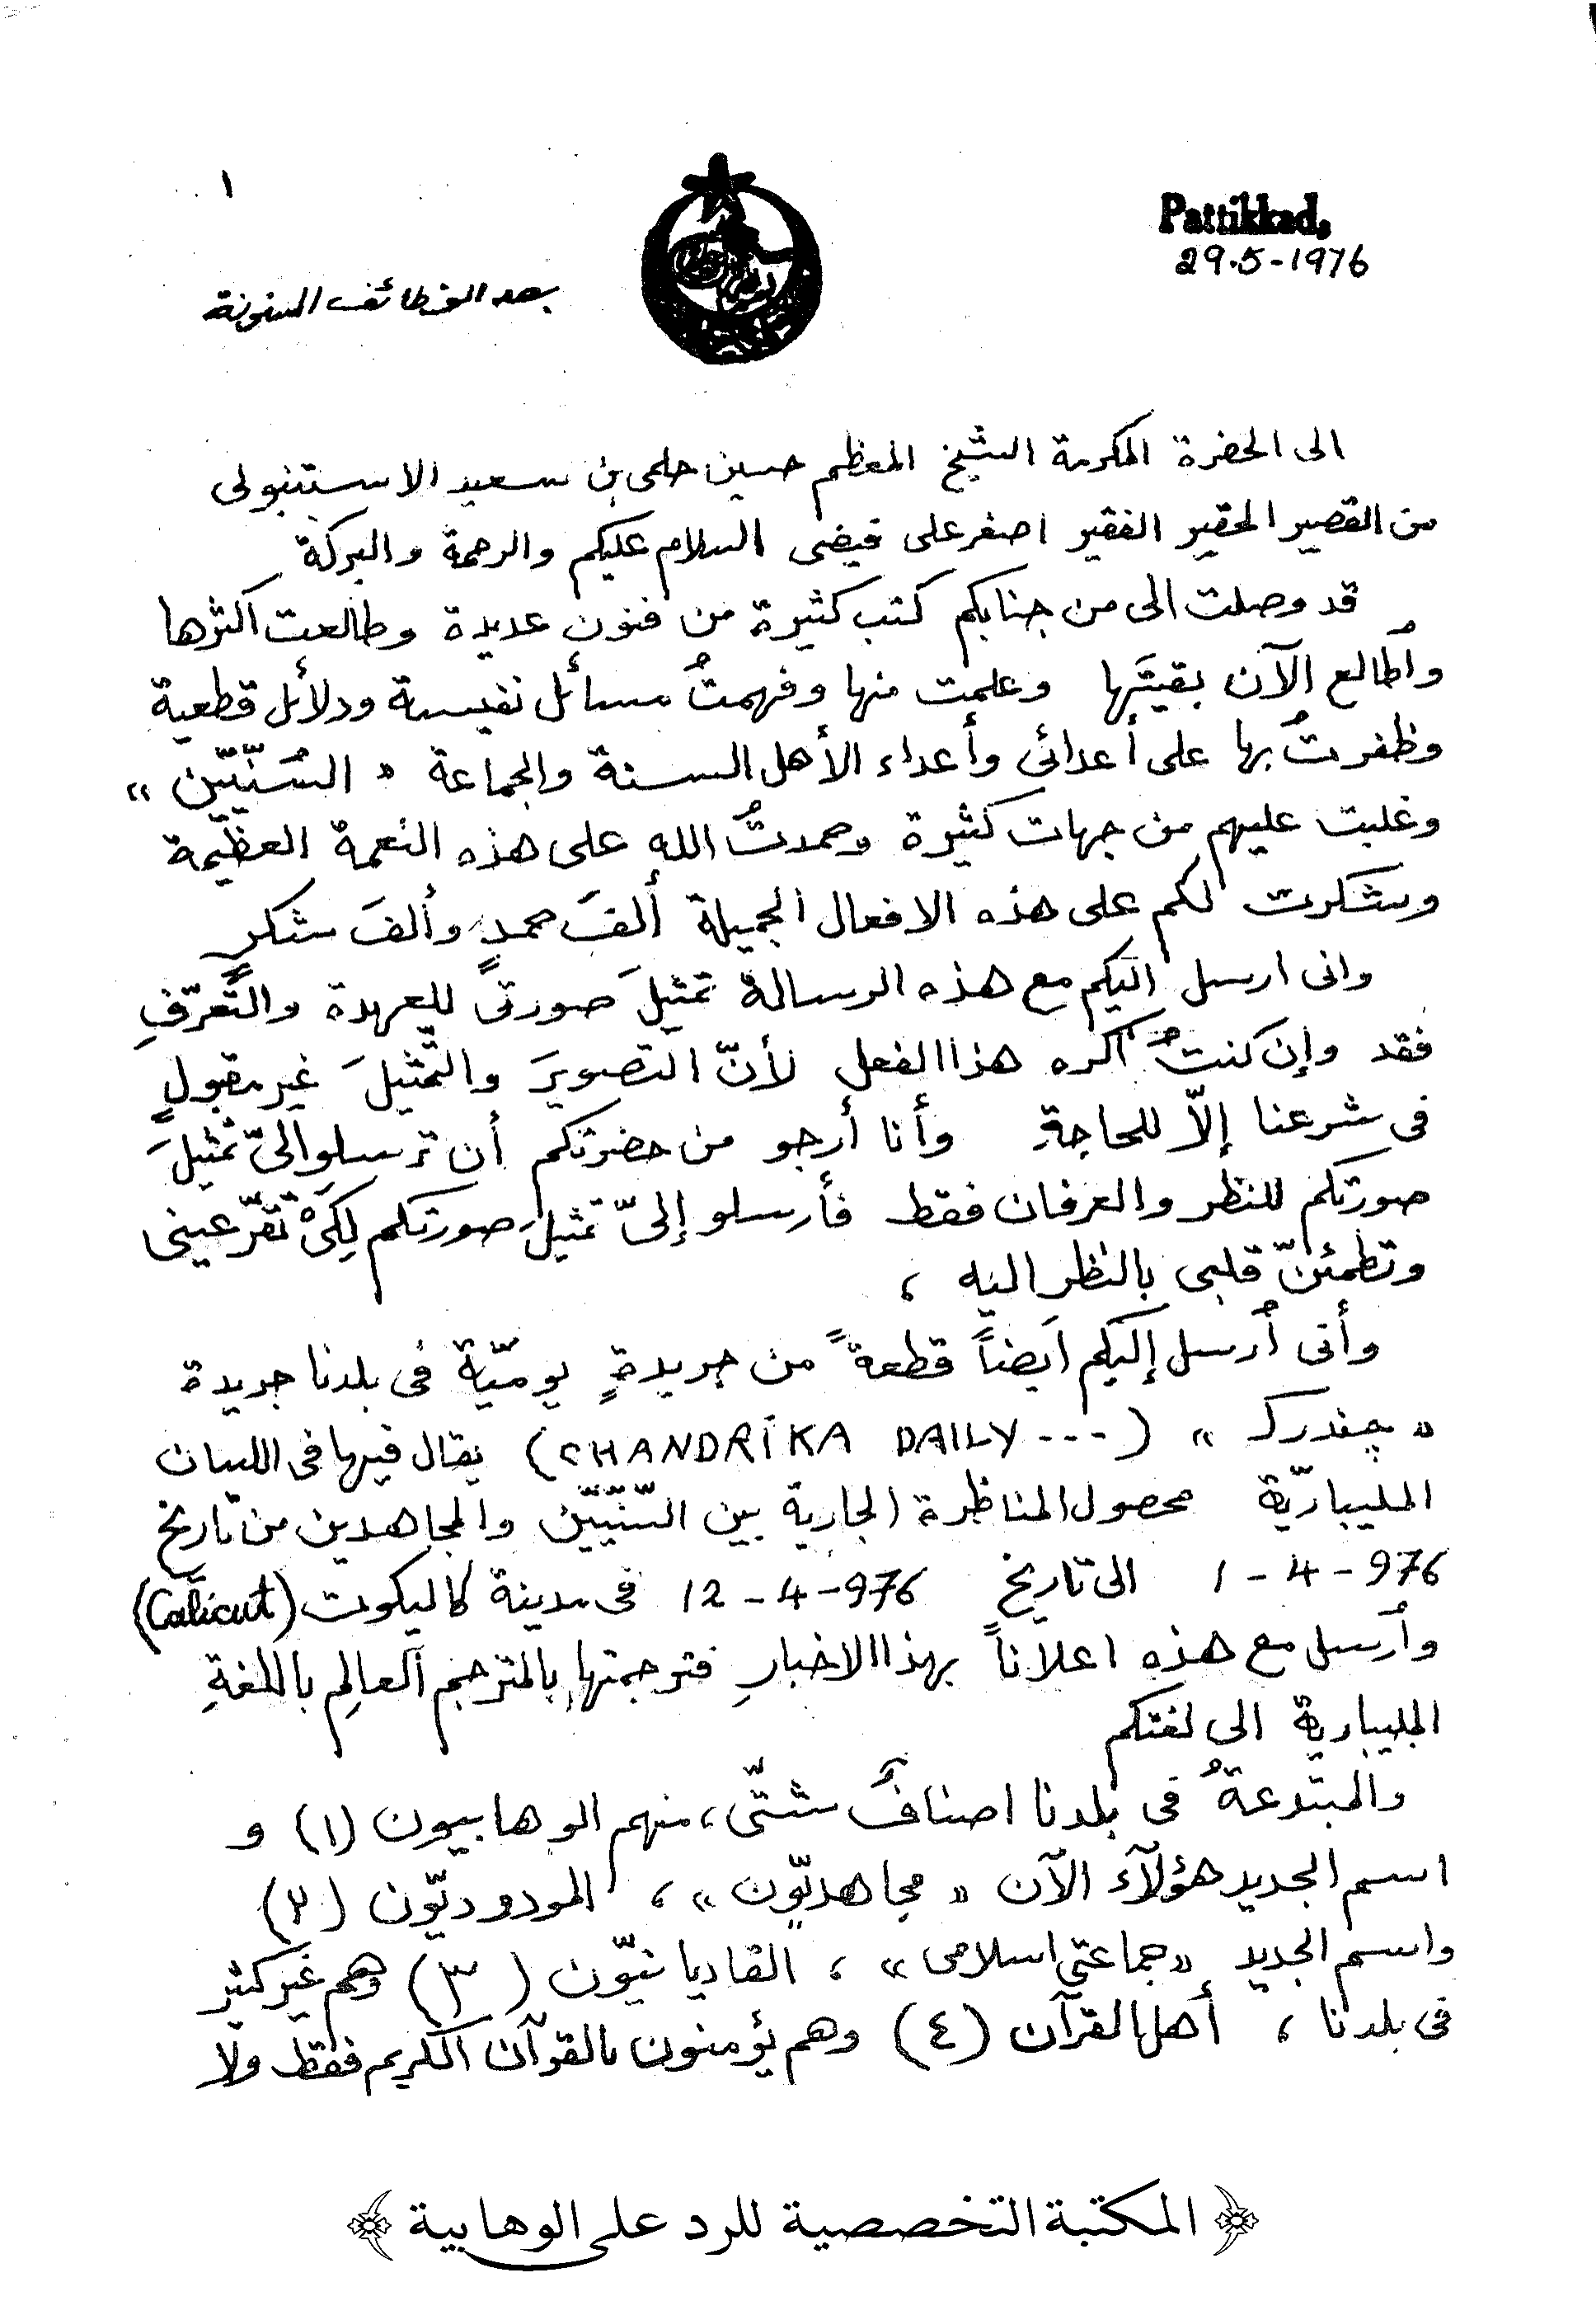 ١
Pattikkad,
29.5-1976
بعد الوظائف المسنونة
الى الحضرة المكرمة الشيخ المعظم حسين حلمى بن سعيد الاستنبولى
من القصير الحقير الفقير اصغر على فيضى السلام عليكم والرحمة والبركة
قد وصلت الى من جنابكم كتب كثيرة من فنون عديدة وطالعت أكثرها
وأطالع الآن بقيتَها وعلمت منها وفهمتُ مسائل نفيسة ودلائل قطعية
وظفرتُ بها على أعدائى وأعداء الأهل السنة والجماعة « السُنّيّين »
وغلبت عليهم من جهات كثيرة وحمدتُ الله على هذه النعمة العظيمة
وشكرت لكم على هذه الافعال الجميلة ألفَ حمدٍ وألفَ شكرٍ
وانى ارسل اليكم مع هذه الرسالة تمثيلَ صورتى للعهدة والتّعرّفِ
فقد وإن كنتُ أكره هذا الفعل لأنّ التصويرَ والتّمثيلَ غير مقبولٍ
فى شرعنا إلاّ للحاجة وأنا أرجو من حضرتكم أن ترسلوا الىّ تمثيلَ
صورتكم للنظر والعرفان فقط فأرسلو إلىّ تمثيلَ صورتكم لِكَىْ تقرّ عينى
وتطمئنّ قلبى بالنظر اليه ،
وأنى أرسل إليكم أيضاً قطعةً من جريدةٍ يوميّة فى بلدنا جريدة
« چندرك » (CHANDRIKA DAILY ---) يقال فيها فى اللسان
المليباريّة محصول المناظرة الجارية بين السّنّيّين والمجاهدين من تاريخ
1-4-976 الى تاريخ 12-4-976 فى مدينة كاليكوت (Calicut)
وأرسل مع هذه اعلاناً بهذا الاخبارِ فترجمتها بالمترجم العالِم باللغةِ
المليبارية الى لغتكم
والمبتدعةُ فى بلدنا اصنافٌ شتّى، منهم الوهابيون (١) و
اسم الجديد هؤلآء الآن « مجاهديّون » ، المودوديّون (٢)
واسم الجديد «جماعتى اسلامى» ، القاديانيّون (٣) وهم غير كثير
فى بلدنا ، أهل القرآن (٤) وهم يؤمنون بالقرآن الكريم فقط ولا
﴿ المكتبة التخصصية للرد على الوهابية ﴾